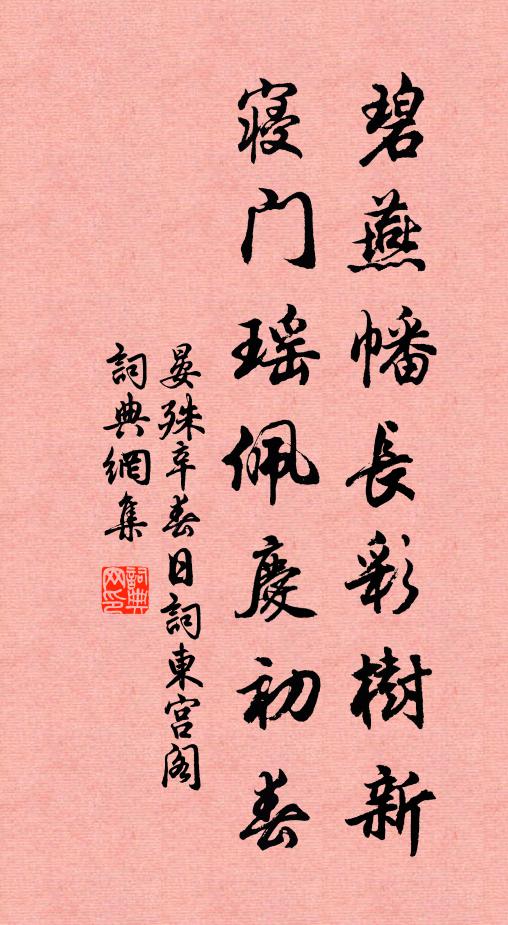 碧燕幡長彩樹新
寝門瑶佩慶初春
晏殊辛春日詞東宫阁
詞典網集
詞典网印